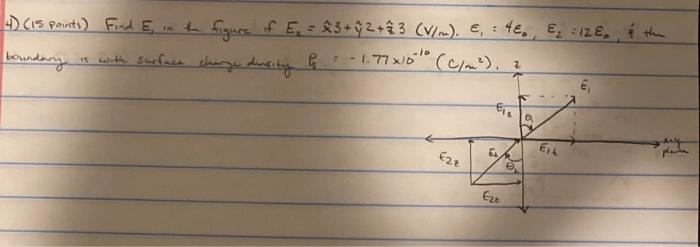 4) (15 points) Find E₁ in the figure if E₂ = x̂3+ŷ2+ẑ3 (V/m). ε₁ = 4ε₀, ε₂ = 12ε₀, & the
boundary is with surface charge density ρₛ = -1.77x10⁻¹⁰ (C/m²).
z
E₁
E₁z
θ₁
E₁t
x-y
plane
E₂z
E₂
θ₂
E₂t